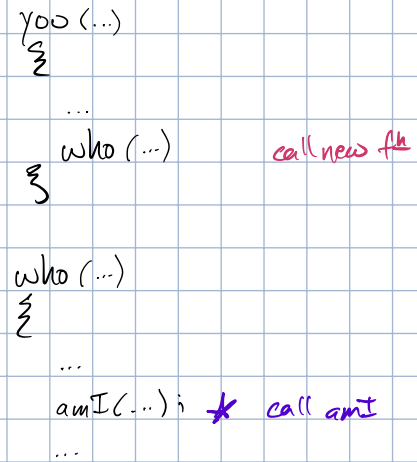 yoo (...)
{
...
who (...) call new fn
}
who (...)
{
...
amI(...); * call amI
...